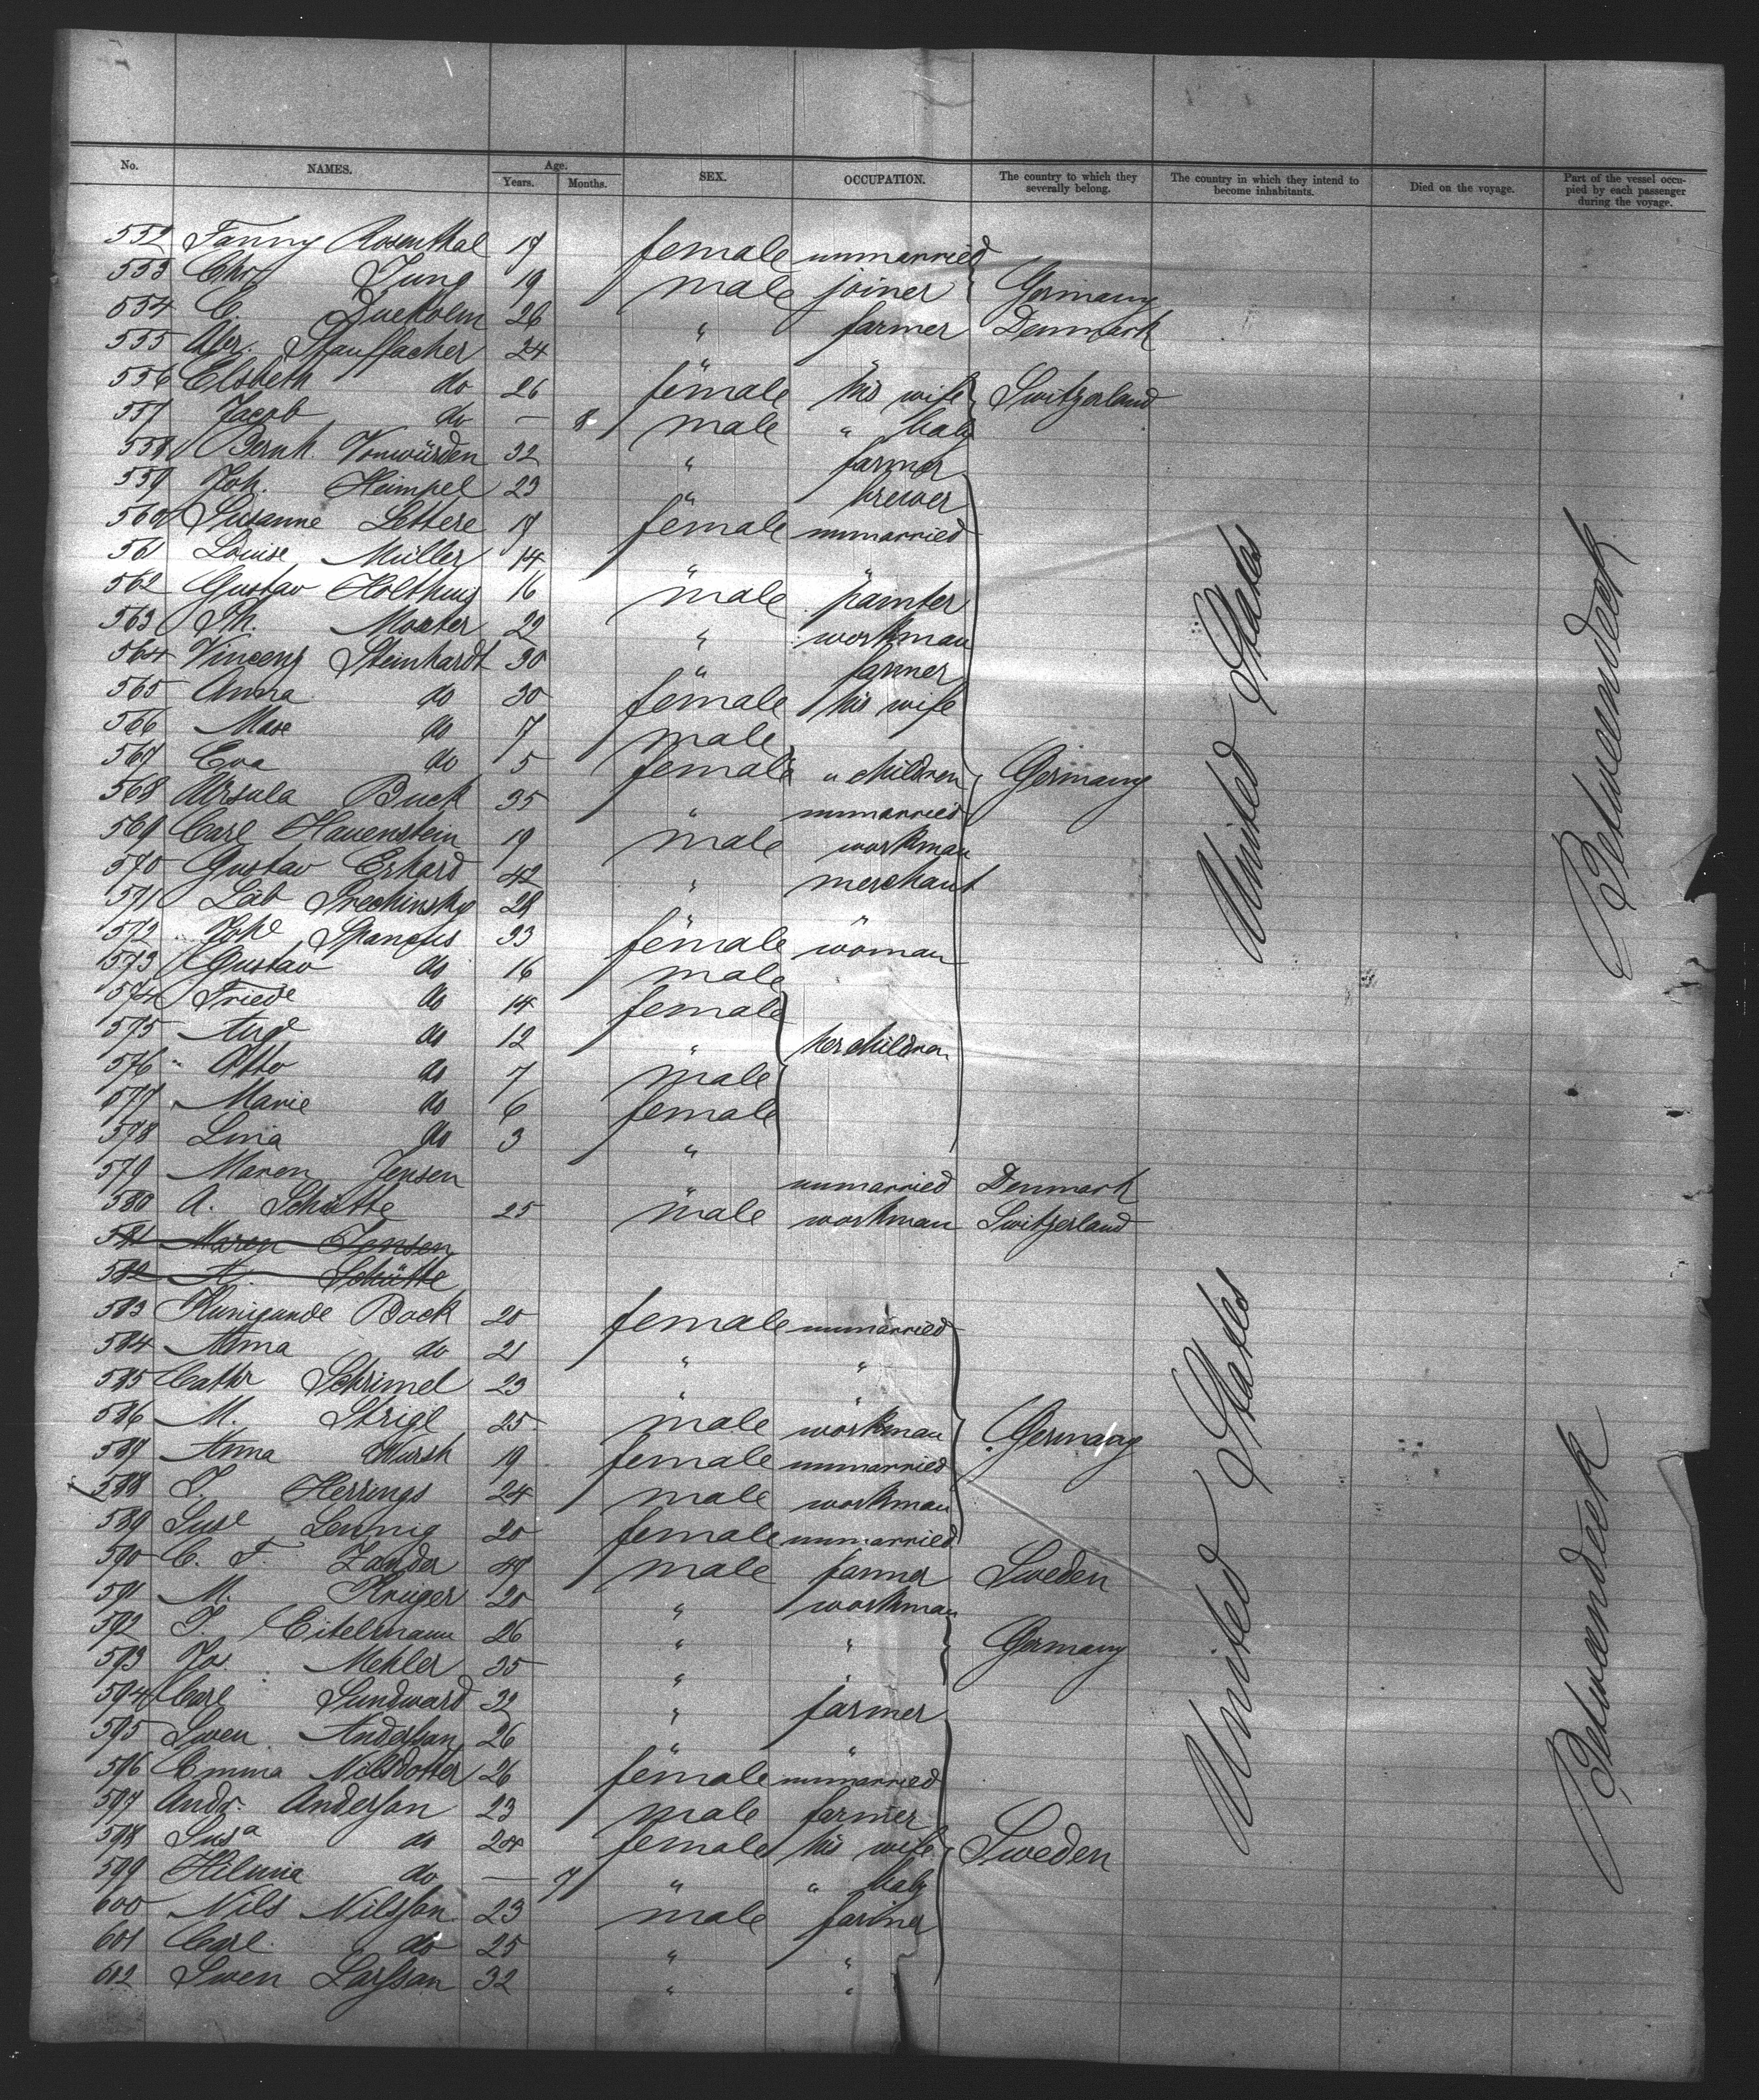 No. NAMES. Age. Years. Months. SEX. OCCUPATION. The country to which they severally belong. The country in which they intend to become inhabitants. Died on the voyage. Part of the vessel occupied by each passenger during the voyage.
552 Fanny Rosenthal 17 female unmarried
553 Chr. Jung 19 male joiner Germany
554 C. 26 " farmer Denmark
555 Stauffacher 24 "
556 Elsbeth do 26 female his wife Switzerland
557 Jacob do — 8 male " baby
558 Bernh. Vonwürden 32 " farmer
559 Joh. Heimpel 23 " brewer
560 Susanne Lettere 17 female unmarried
561 Louise Müller 14 " "
562 Gustav Holthus 16 male painter
563 Ph. Moater 22 " workman
564 Vincenz Steinhardt 30 " farmer
565 Anna do 30 female his wife
566 do 7 male
567 Eva do 5 female " children Germany
568 Ursula Buck 35 " unmarried
569 Carl Hauenstein 19 male workman
570 Gustav Erhard 42 " merchant
571 Läb 28 " "
572 33 female woman
573 Gustav do 16 male
574 Friede do 14 female
575 Aug do 12 " her children
576 Otto do 7 male
577 Marie do 6 female
578 Lina do 3 "
579 Maren Jensen " unmarried Denmark
580 A. Schütte 25 male workman Switzerland
581 Maren Jensen
582 A. Schütte
583 Kunigunde Bock 20 female unmarried
584 Anna do 21 " "
585 Cathr Schrimel 23 " "
586 M. Strigl 25 male workman Germany
587 Anna Wursh 19 female unmarried
588 J. Herrings 24 male workman
589 Suse Lennig 20 female unmarried
590 C. F. Zander 49 male farmer Sweden
591 M. Krüger 20 " workman
592 J. Eitelmann 26 " " Germany
593 Jos. Mehler 35 " "
594 Carl Sundward 32 " farmer
595 Swen Andersson 26 " "
596 Emma Nilsdotter 26 female unmarried
597 Andr. Anderson 23 male farmer
598 Susa do 24 female his wife Sweden
599 Hilma do — 7 " " baby
600 Nils Nilsson 23 male farmer
601 Carl do 25 " "
602 Swen Larsson 32 " "
United States
Betweendeck
United States
Betweendeck